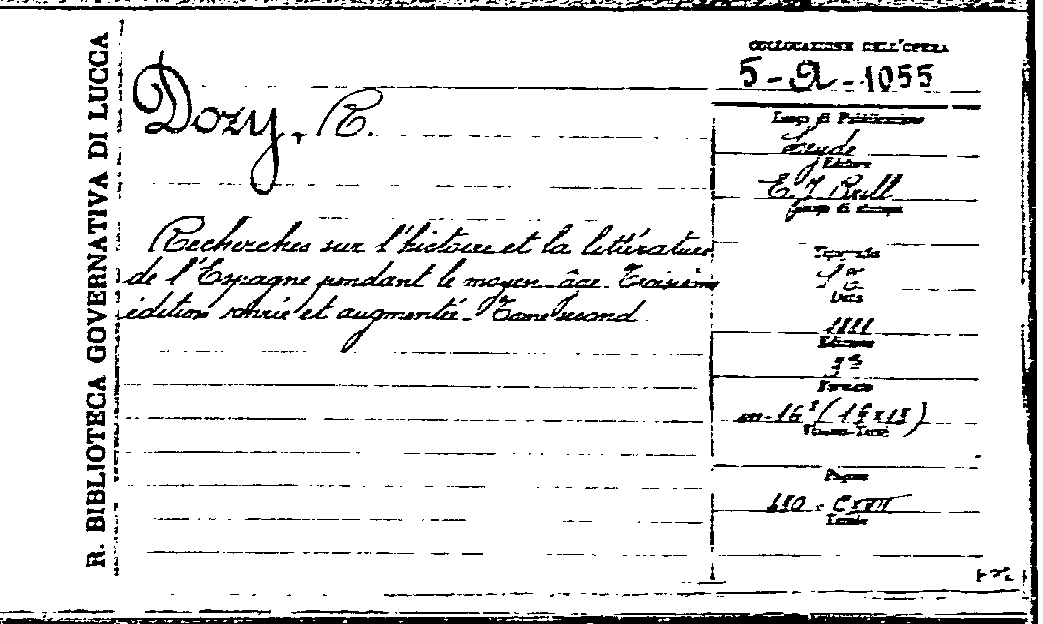 R. BIBLIOTECA GOVERNATIVA DI LUCCA
COLLOCAZIONE DELL'OPERA
5-Q-1055
Dozy, R.
Luogo di Pubblicazione
Leyde
Editore
E. J. Brill
Luogo di stampa
Recherches sur l'histoire et la littérature
de l'Espagne pendant le moyen-âge. Troisième
édition revue et augmentée. Tome second
Tipografia
Data
1881
Edizione
3ª
Formato
in-16°
Pagine